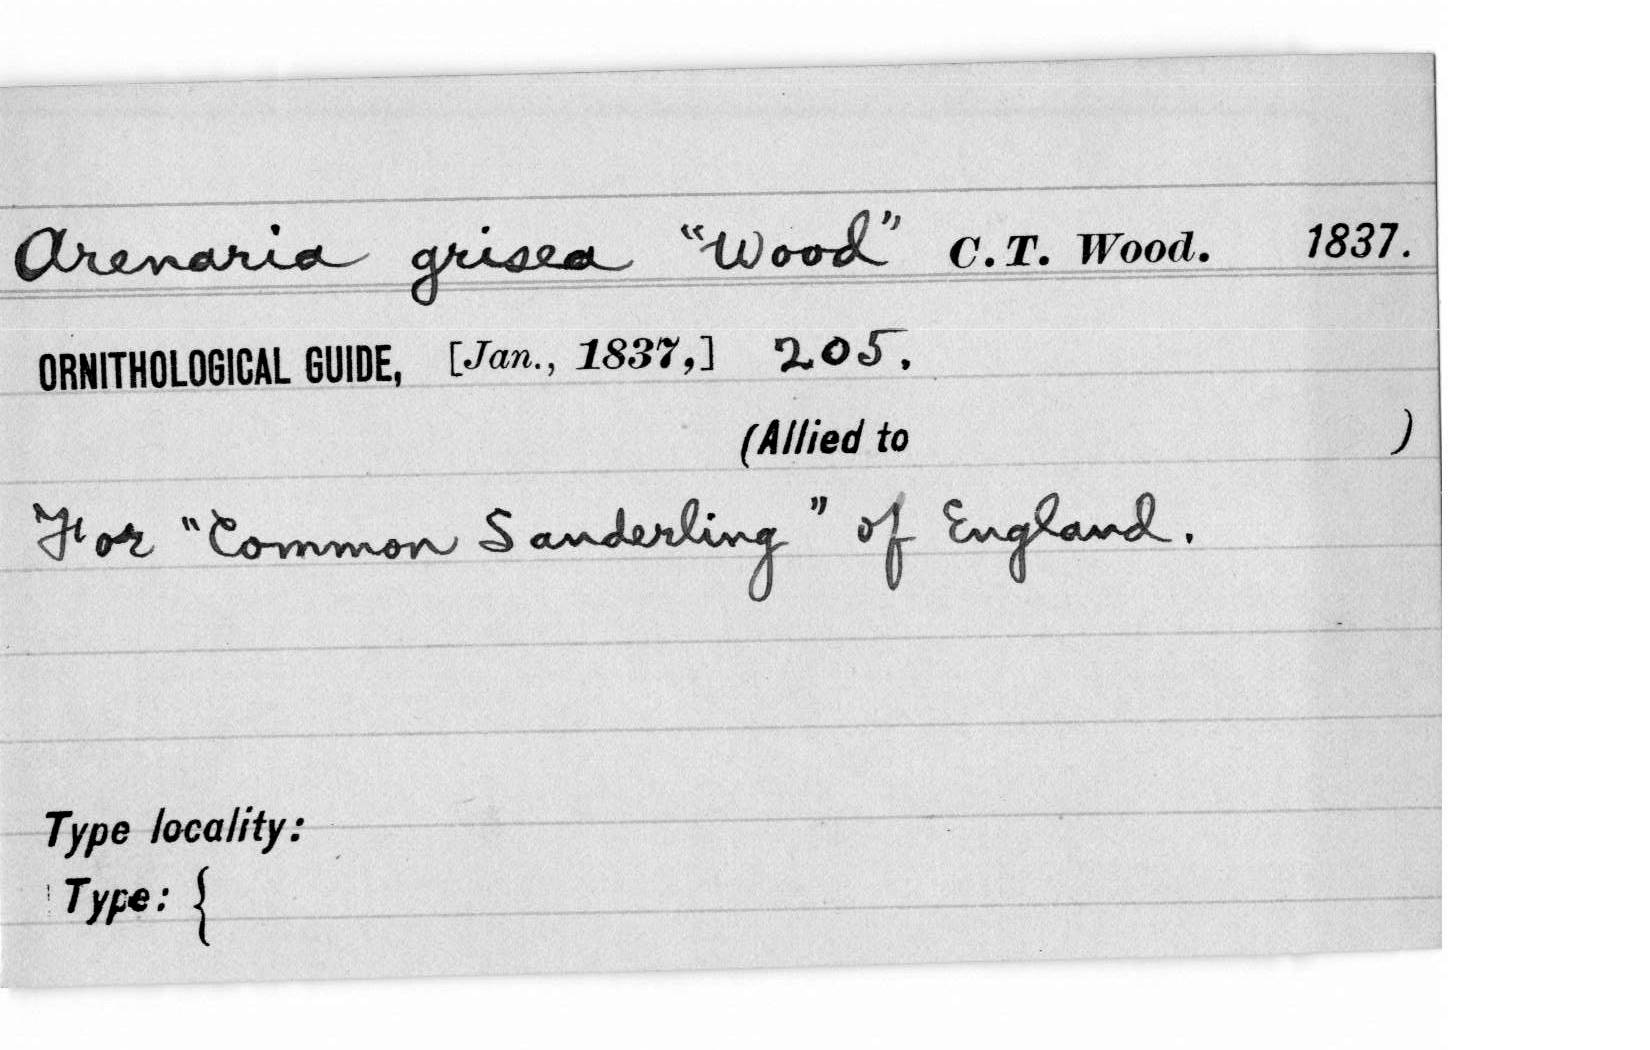 Arenaria grisea "Wood" C.T. Wood. 1837.
ORNITHOLOGICAL GUIDE, [Jan., 1837,] 205.
(Allied to )
For "Common Sanderling" of England.
Type locality:
Type: {